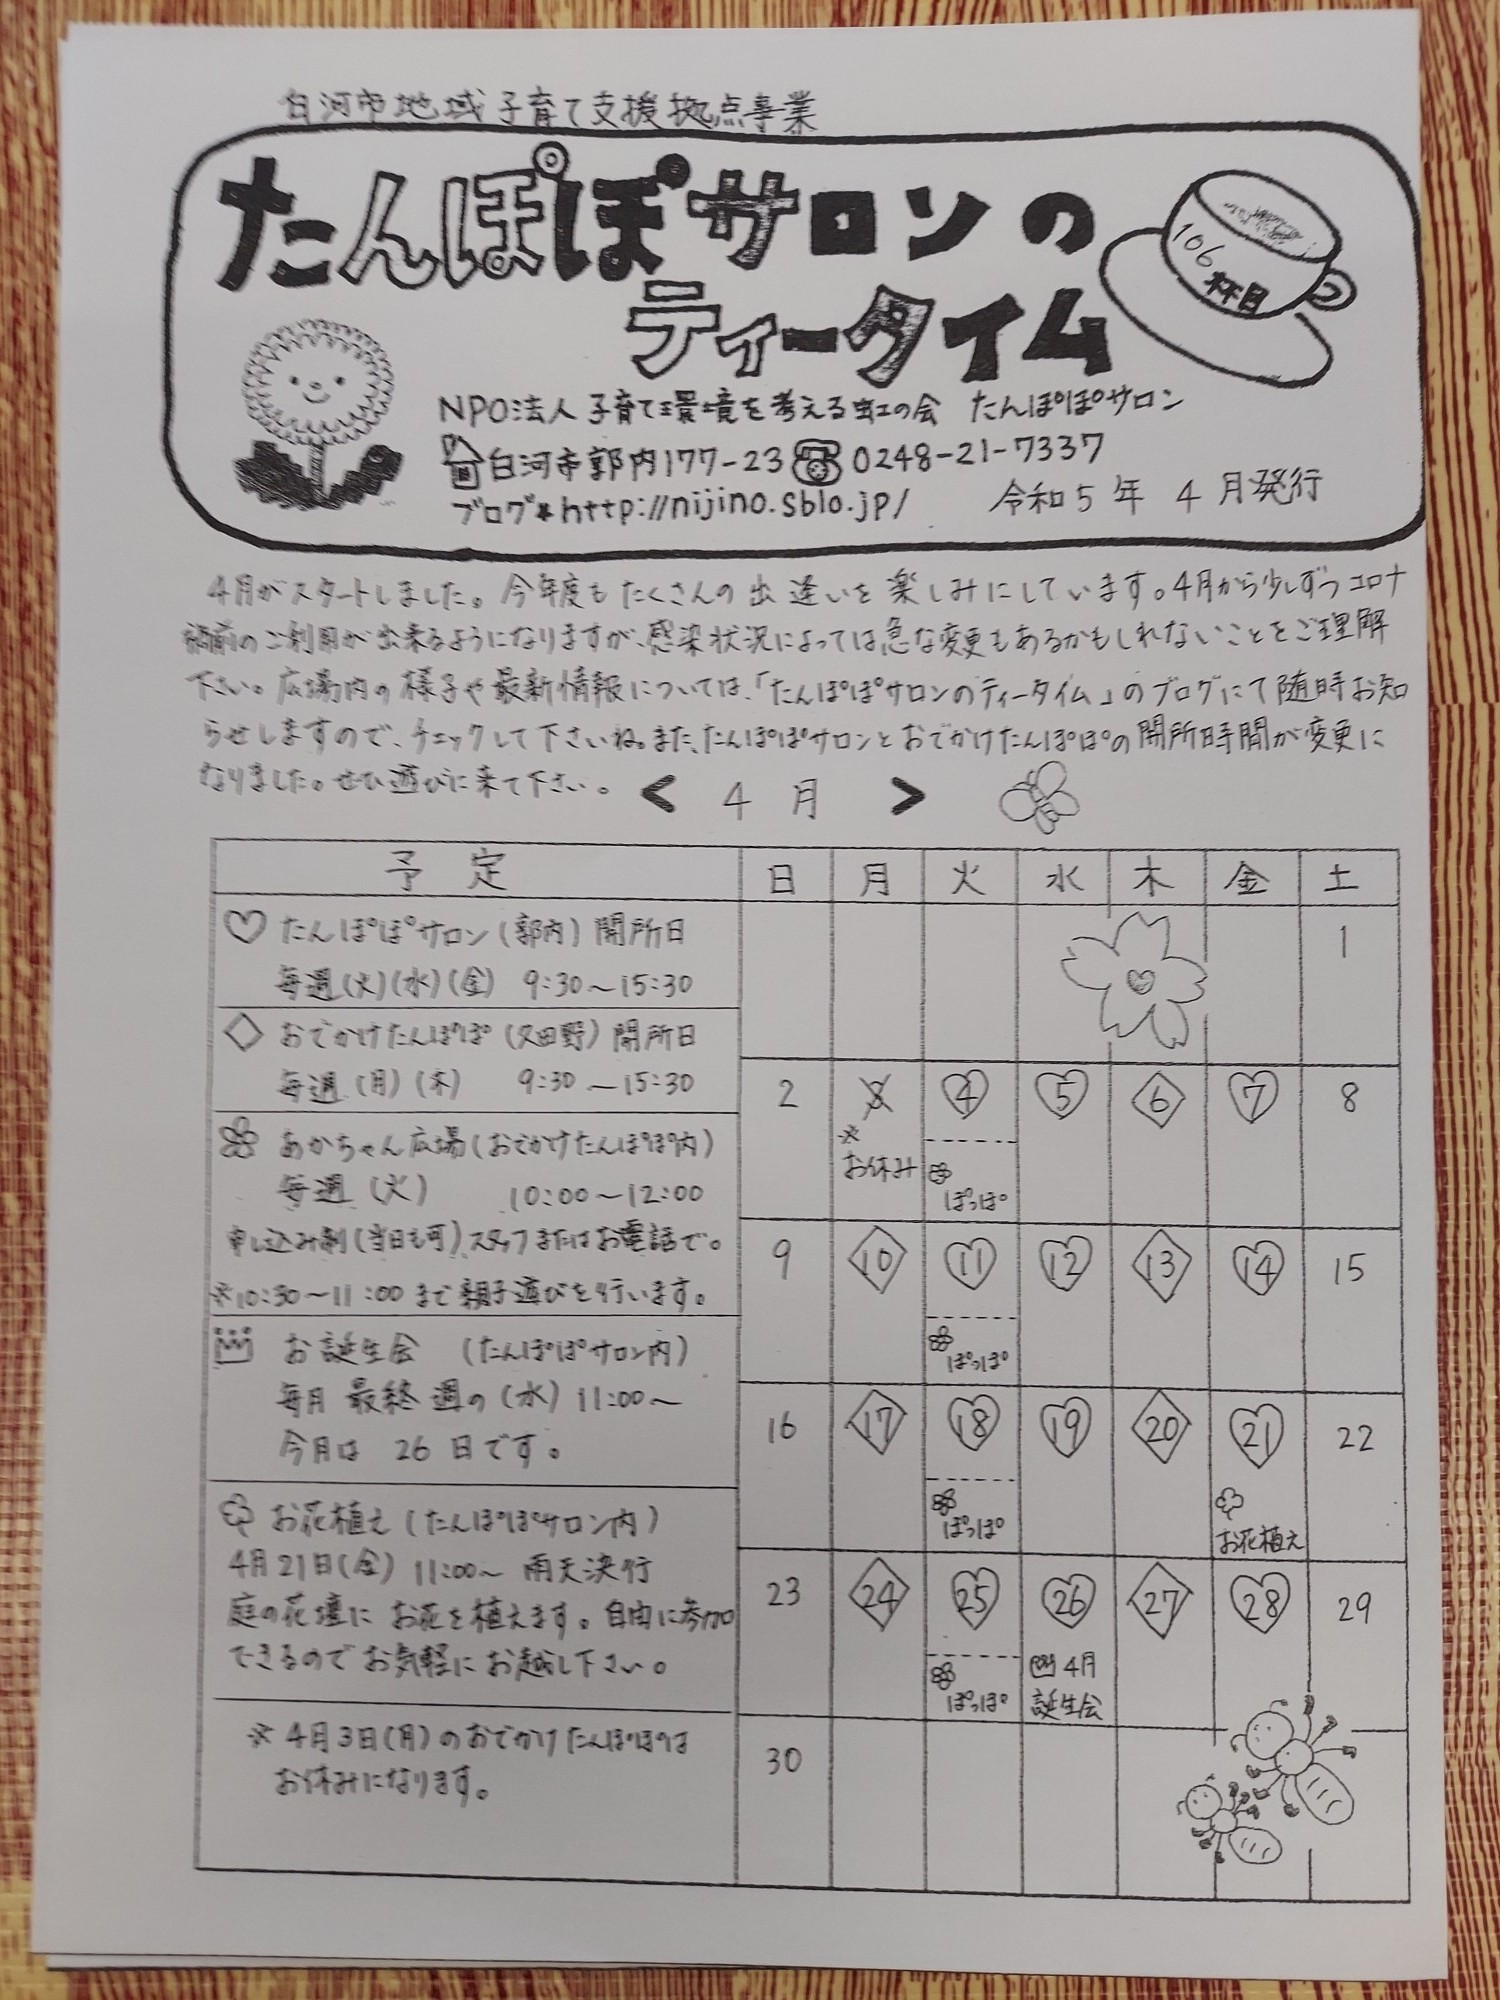 白河市地域子育て支援拠点事業
たんぽぽサロンの
ティータイム
106
杯目
NPO法人子育て環境を考える虹の会 たんぽぽサロン
白河市郭内177-23 0248-21-7337
ブログ*http://nijino.sblo.jp/ 令和5年 4月発行
4月がスタートしました。今年度もたくさんの出逢いを楽しみにしています。4月から少しずつコロナ
禍前のご利用が出来るようになりますが、感染状況によっては急な変更もあるかもしれないことをご理解
下さい。広場内の様子や最新情報については、「たんぽぽサロンのティータイム」のブログにて随時お知
らせしますので、チェックして下さいね。また、たんぽぽサロンとおでかけたんぽぽの開所時間が変更に
なりました。ぜひ遊びに来て下さい。
< 4月 >
予定 日 月 火 水 木 金 土
♡ たんぽぽサロン(郭内)開所日
毎週(火)(水)(金) 9:30~15:30
◇ おでかけたんぽぽ(久田野)開所日
毎週(月)(木) 9:30~15:30
あかちゃん広場(おでかけたんぽぽ内)
毎週(火) 10:00~12:00
申し込み制(当日も可)スタッフまたはお電話で。
※10:30~11:00まで親子遊びを行います。
お誕生会 (たんぽぽサロン内)
毎月最終週の(水)11:00~
今月は 26日です。
お花植え(たんぽぽサロン内)
4月21日(金) 11:00~ 雨天決行
庭の花壇にお花を植えます。自由に参加
できるのでお気軽にお越し下さい。
※4月3日(月)のおでかけたんぽぽは
お休みになります。
1
2 3 4 5 6 7 8
※
お休み
ぽっぽ
9 10 11 12 13 14 15
ぽっぽ
16 17 18 19 20 21 22
ぽっぽ
お花植え
23 24 25 26 27 28 29
ぽっぽ
4月
誕生会
30